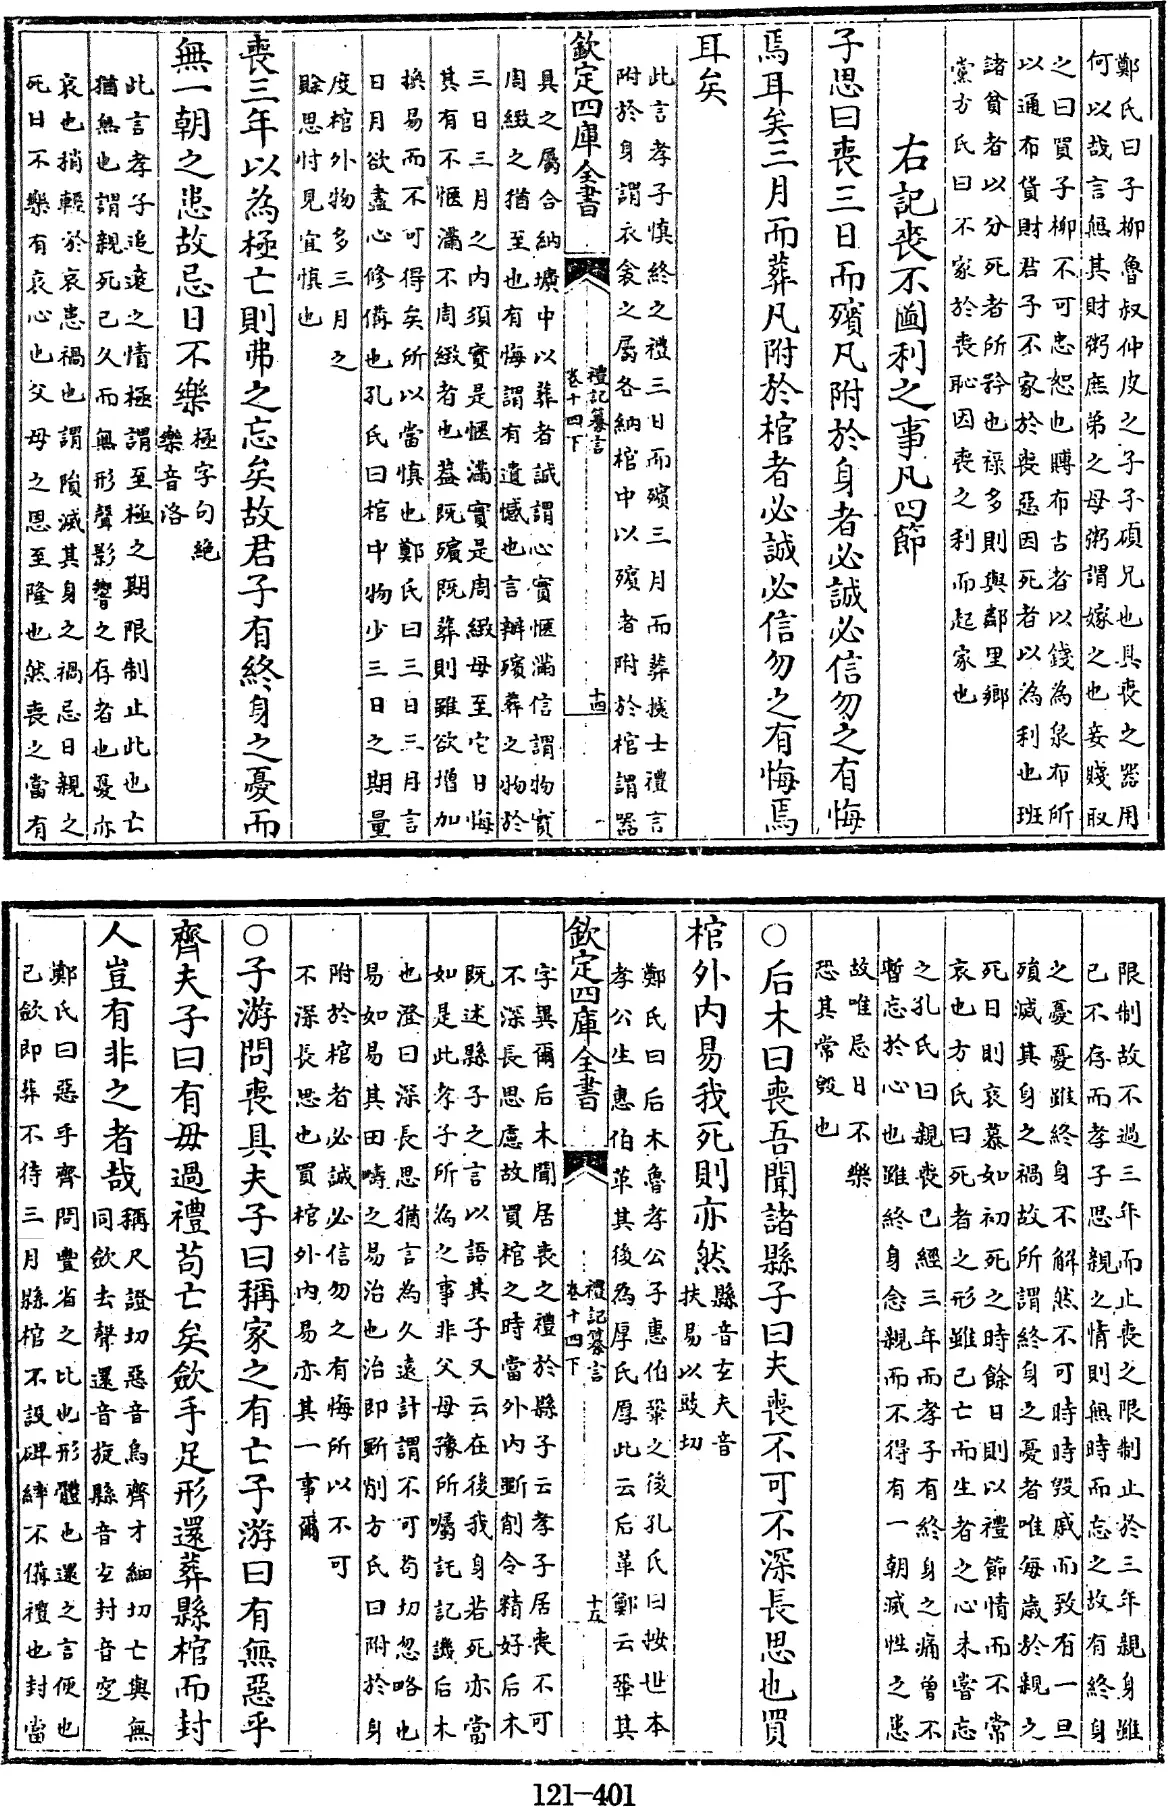 鄭氏曰子柳魯叔仲皮之子子碩兄也具喪之器用
何以哉言無其財粥庶弟之母粥謂嫁之也妾賤取
之曰買子柳不可忠恕也賻布古者以錢為泉布所
以通布貨財君子不家於喪惡因死者以為利也班
諸貧者以分死者所矜也祿多則與鄰里鄉
黨方氏曰不家於喪恥因喪之利而起家也
右記喪不圖利之事凡四節
子思曰喪三日而殯凡附於身者必誠必信勿之有悔
焉耳矣三月而葬凡附於棺者必誠必信勿之有悔焉
耳矣
此言孝子慎終之禮三日而殯三月而葬據士禮言
附於身謂衣衾之屬各納棺中以殯者附於棺謂器
欽定四庫全書
禮記纂言
卷十四下
十四
具之屬合納壙中以葬者誠謂心實愜滿信謂物實
周緻之猶至也有悔謂有遺憾也言辦殯葬之物於
三日三月之內須實是愜滿實是周緻毋至它日悔
其有不愜滿不周緻者也葢既殯既葬則雖欲增加
換易而不可得矣所以當慎也鄭氏曰三日三月言
日月欲盡心修備也孔氏曰棺中物少三日之期量
度棺外物多三月之
賖思忖見宜慎也
喪三年以為極亡則弗之忘矣故君子有終身之憂而
無一朝之患故忌日不樂
極字句絶
樂音洛
此言孝子追遠之情極謂至極之期限制止此也亡
猶無也謂親死已久而無形聲影響之存者也憂亦
哀也稍輕於哀患禍也謂隕滅其身之禍忌日親之
死日不樂有哀心也父母之恩至隆也然喪之當有
限制故不過三年而止喪之限制止於三年親身雖
已不存而孝子思親之情則無時而忘之故有終身
之憂憂雖終身不解然不可時時毀戚而致有一旦
殞滅其身之禍故所謂終身之憂者唯每歲於親之
死日則哀慕如初死之時餘日則以禮節情而不常
哀也方氏曰死者之形雖已亡而生者之心未嘗忘
之孔氏曰親喪已經三年而孝子有終身之痛曽不
暫忘於心也雖終身念親而不得有一朝滅性之患
故唯忌日不樂
恐其常毀也
○后木曰喪吾聞諸縣子曰夫喪不可不深長思也買
棺外内易我死則亦然
縣音玄夫音
扶易以豉切
鄭氏曰后木魯孝公子惠伯鞏之後孔氏曰按世本
孝公生惠伯革其後為厚氏厚此云后革鄭云鞏其
欽定四庫全書
禮記纂言
卷十四下
十五
字異爾后木聞居喪之禮於縣子云孝子居喪不可
不深長思慮故買棺之時當外内斵削令精好后木
既述縣子之言以語其子又云在後我身若死亦當
如是此孝子所為之事非父母豫所囑託記譏后木
也澄曰深長思猶言為久遠計謂不可苟切忽略也
易如易其田疇之易治也治即斵削方氏曰附於身
附於棺者必誠必信勿之有悔所以不可
不深長思也買棺外内易亦其一事爾
○子游問喪具夫子曰稱家之有亡子游曰有無惡乎
齊夫子曰有毋過禮苟亡矣斂手足形還葬縣棺而封
人豈有非之者哉
稱尺證切惡音烏齊才細切亡與無
同斂去聲還音旋縣音玄封音窆
鄭氏曰惡乎齊問豐省之比也形體也還之言便也
已斂即葬不待三月縣棺不設碑繂不備禮也封當
121-401